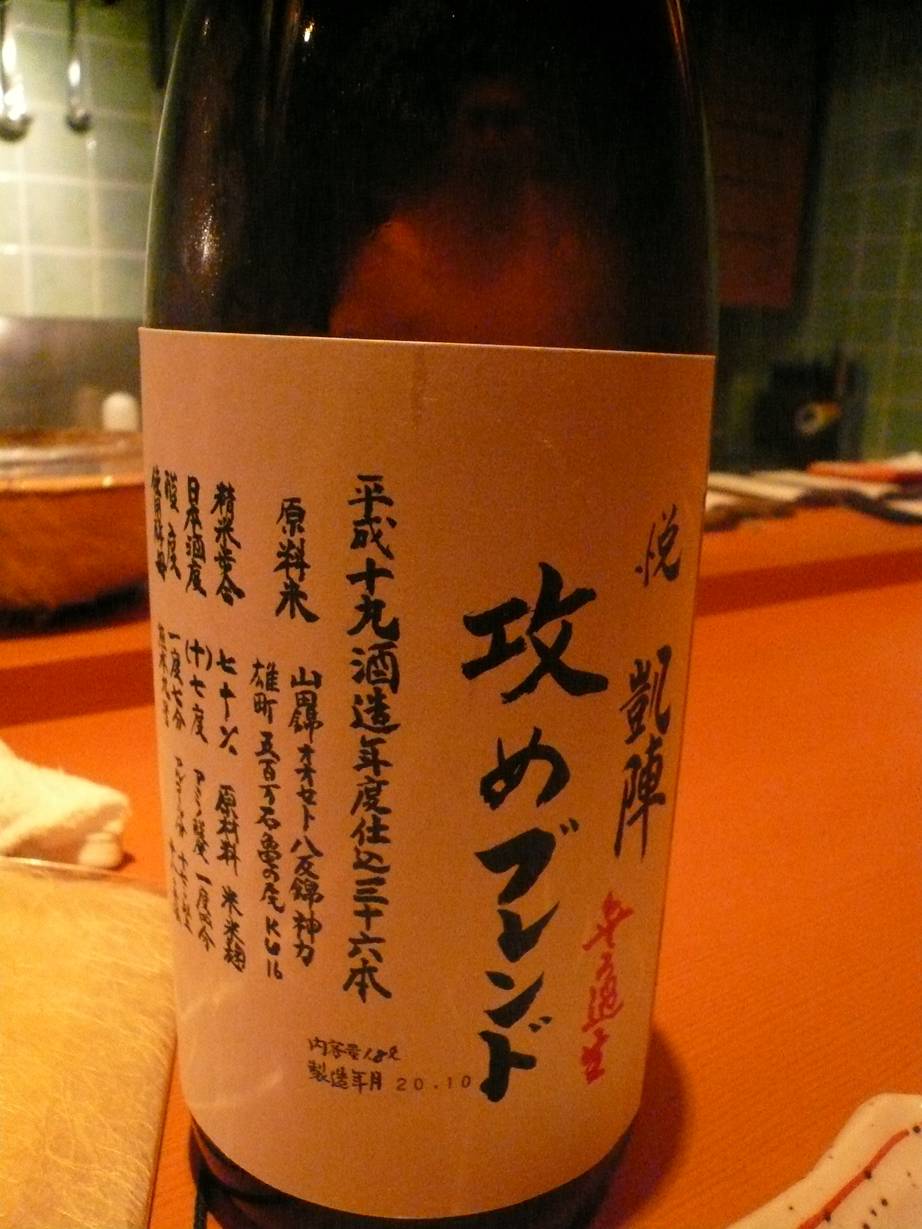 悦 凱陣
無ろ過生
攻めブレンド
平成十九酒造年度仕込三十六本
原料米
山田錦 オオセト 八反錦 神力
雄町 五百万石 亀の尾 KU16
精米歩合 七十% 原材料 米 米麹
日本酒度 (十)七度 アミノ酸度 一度四分
酸度 一度七分
内容量1.8ℓ
製造年月 20.10